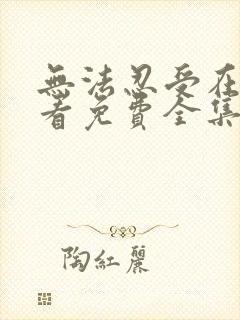 無法忍受在
看免費全集
陶紅麗